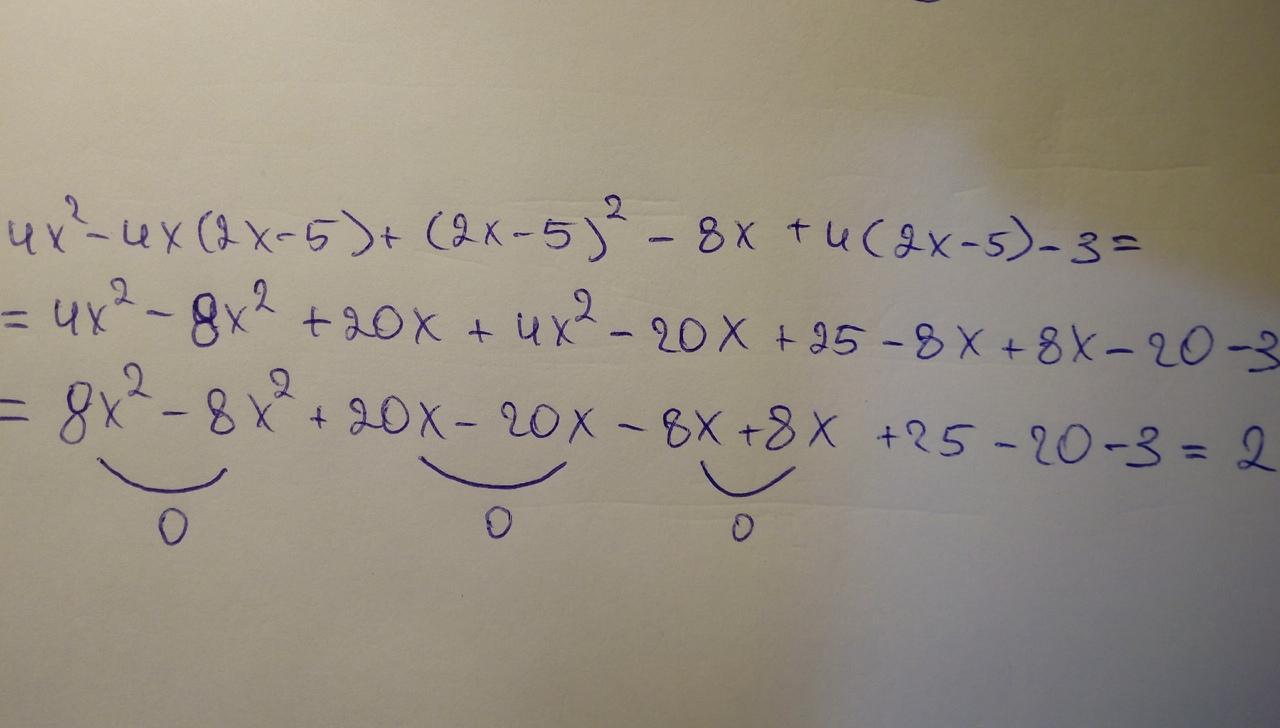 4x²-4x(2x-5)+(2x-5)²-8x+4(2x-5)-3=
=4x²-8x²+20x+4x²-20x+25-8x+8x-20-3
=8x²-8x²+20x-20x-8x+8x+25-20-3=2
0 0 0